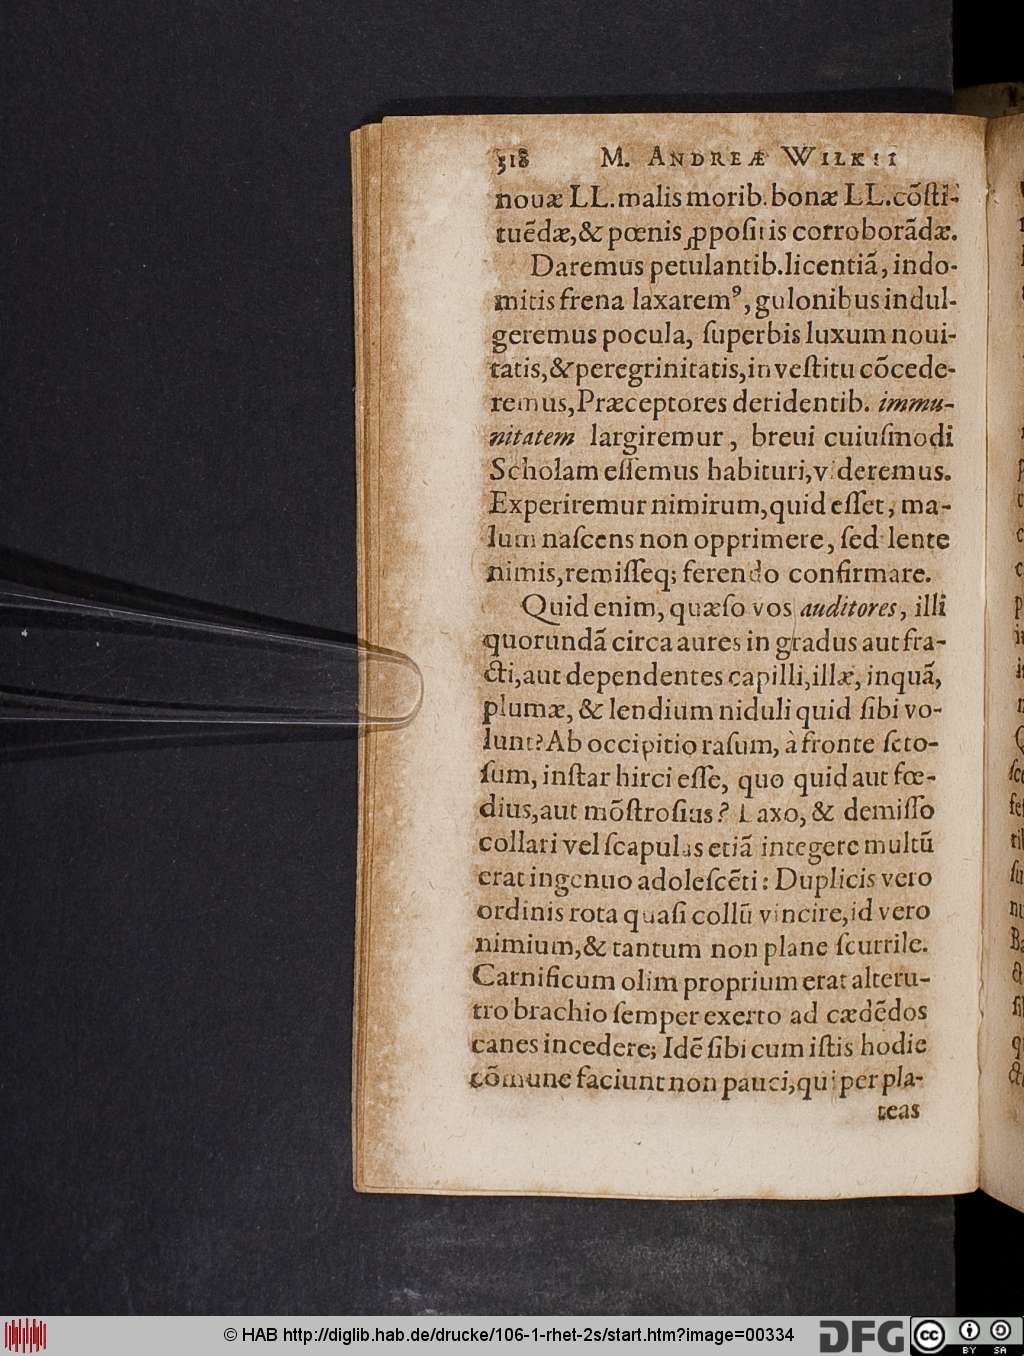 318 M. ANDREÆ WILKII
nouæ LL. malis morib. bonæ LL. cõſti-
tuẽdæ, & pœnis ꝓpoſitis corroborãdæ.
Daremus petulantib. licentiã, indo-
mitis frena laxaremꝰ, gulonibus indul-
geremus pocula, ſuperbis luxum noui-
tatis, & peregrinitatis, in veſtitu cõcede-
remus, Præceptores deridentib. immu-
nitatem largiremur, breui cuiuſmodi
Scholam eſſemus habituri, videremus.
Experiremur nimirum, quid eſſet, ma-
lum naſcens non opprimere, ſed lente
nimis, remiſſeq; ferendo confirmare.
Quid enim, quæſo vos auditores, illi
quorundã circa aures in gradus aut fra-
cti, aut dependentes capilli, illæ, inquã,
plumæ, & lendium niduli quid ſibi vo-
lunt? Ab occipitio raſum, à fronte ſeto-
ſum, inſtar hirci eſſe, quo quid aut fœ-
dius, aut mõſtroſius? Laxo, & demiſſo
collari vel ſcapulas etiã integere multũ
erat ingenuo adoleſcẽti: Duplicis vero
ordinis rota quaſi collũ vincire, id vero
nimium, & tantum non plane ſcurrile.
Carnificum olim proprium erat alteru-
tro brachio ſemper exerto ad cædẽdos
canes incedere; Idẽ ſibi cum iſtis hodie
cõmune faciunt non pauci, qui per pla-
teas
© HAB http://diglib.hab.de/drucke/106-1-rhet-2s/start.htm?image=00334
DFG
cc BY SA